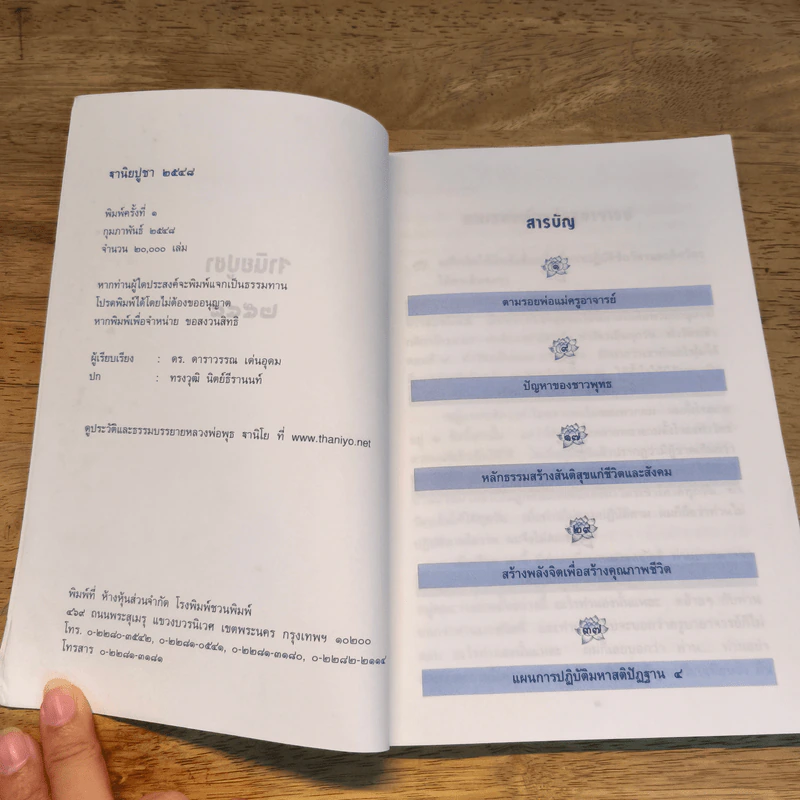 ฐานิยปูชา ๒๕๔๘
พิมพ์ครั้งที่ ๑
กุมภาพันธ์ ๒๕๔๘
จำนวน ๒๐,๐๐๐ เล่ม
หากท่านผู้ใดประสงค์จะพิมพ์แจกเป็นธรรมทาน
โปรดพิมพ์ได้โดยไม่ต้องขออนุญาต
หากพิมพ์เพื่อจำหน่าย ขอสงวนสิทธิ์
ผู้เรียบเรียง : ดร. ดาราวรรณ เด่นอุดม
ปก : ทรงวุฒิ นิตย์ธีรานนท์
ดูประวัติและธรรมบรรยายหลวงพ่อพุธ ฐานิโย ที่ www.thaniyo.net
พิมพ์ที่ ห้างหุ้นส่วนจำกัด โรงพิมพ์ชวนพิมพ์
๔๖๙ ถนนพระสุเมรุ แขวงบวรนิเวศ เขตพระนคร กรุงเทพฯ ๑๐๒๐๐
โทร. ๐-๒๒๘๐-๓๕๔๒, ๐-๒๒๘๑-๐๕๔๑, ๐-๒๒๘๑-๓๑๘๐, ๐-๒๒๘๒-๒๑๑๔
โทรสาร ๐-๒๒๘๑-๓๑๘๑
สารบัญ
๑
ตามรอยพ่อแม่ครูอาจารย์
๙
ปัญหาของชาวพุทธ
๑๗
หลักธรรมสร้างสันติสุขแก่ชีวิตและสังคม
๒๙
สร้างพลังจิตเพื่อสร้างคุณภาพชีวิต
๓๗
แผนการปฏิบัติมหาสติปัฏฐาน ๔